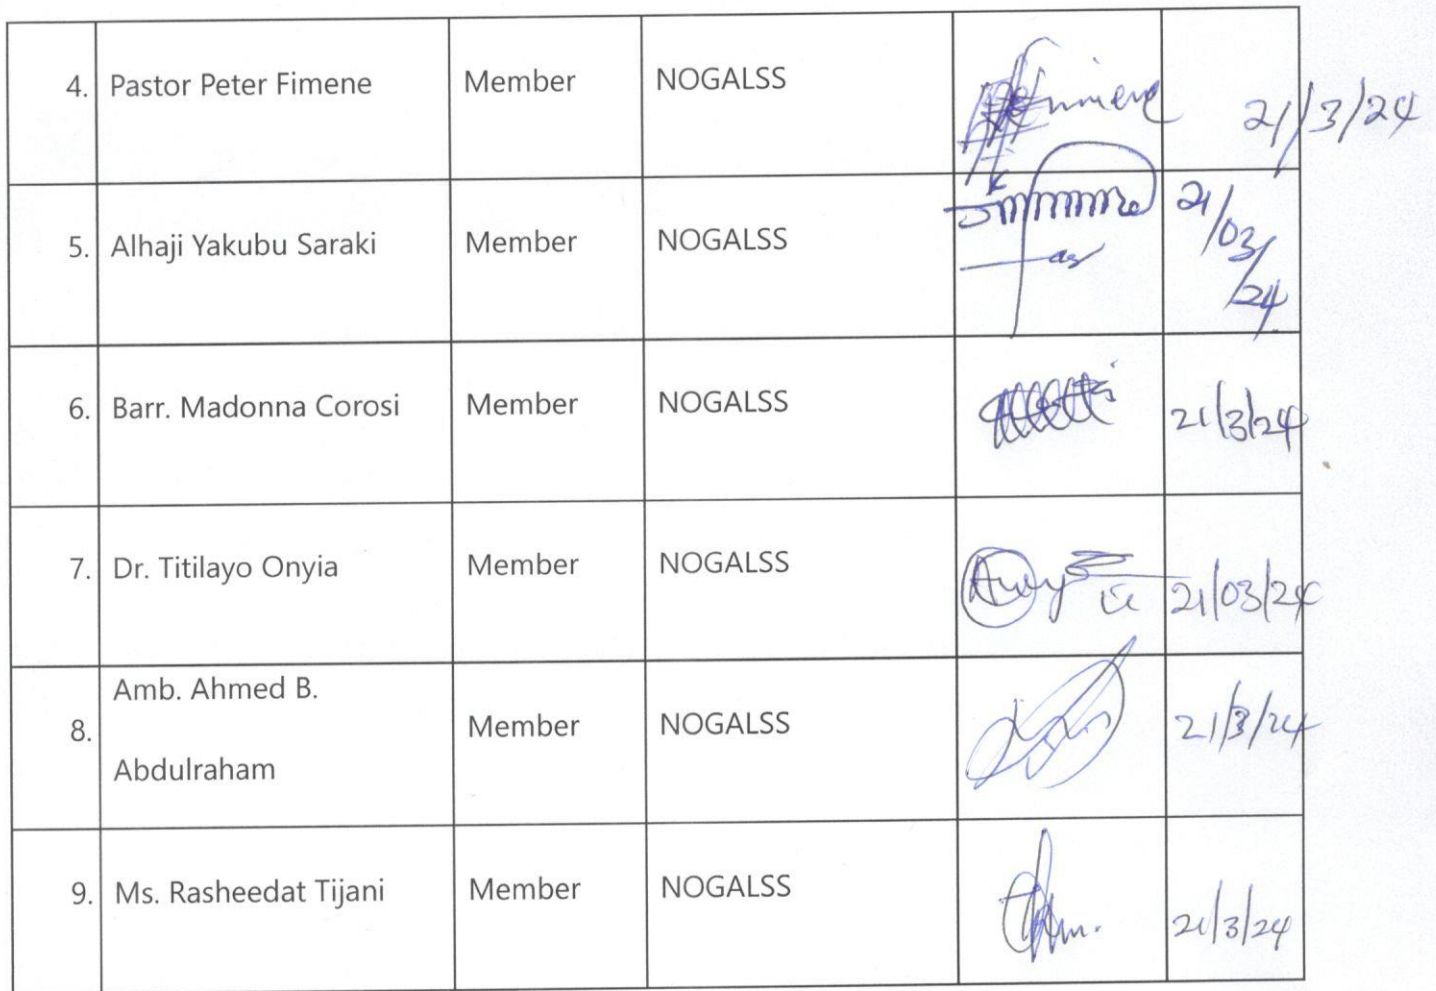 4. Pastor Peter Fimene Member NOGALSS 21/3/24
5. Alhaji Yakubu Saraki Member NOGALSS 21/03/24
6. Barr. Madonna Corosi Member NOGALSS 21/3/24
7. Dr. Titilayo Onyia Member NOGALSS 21/03/24
8. Amb. Ahmed B.
Abdulraham Member NOGALSS 21/3/24
9. Ms. Rasheedat Tijani Member NOGALSS 21/3/24